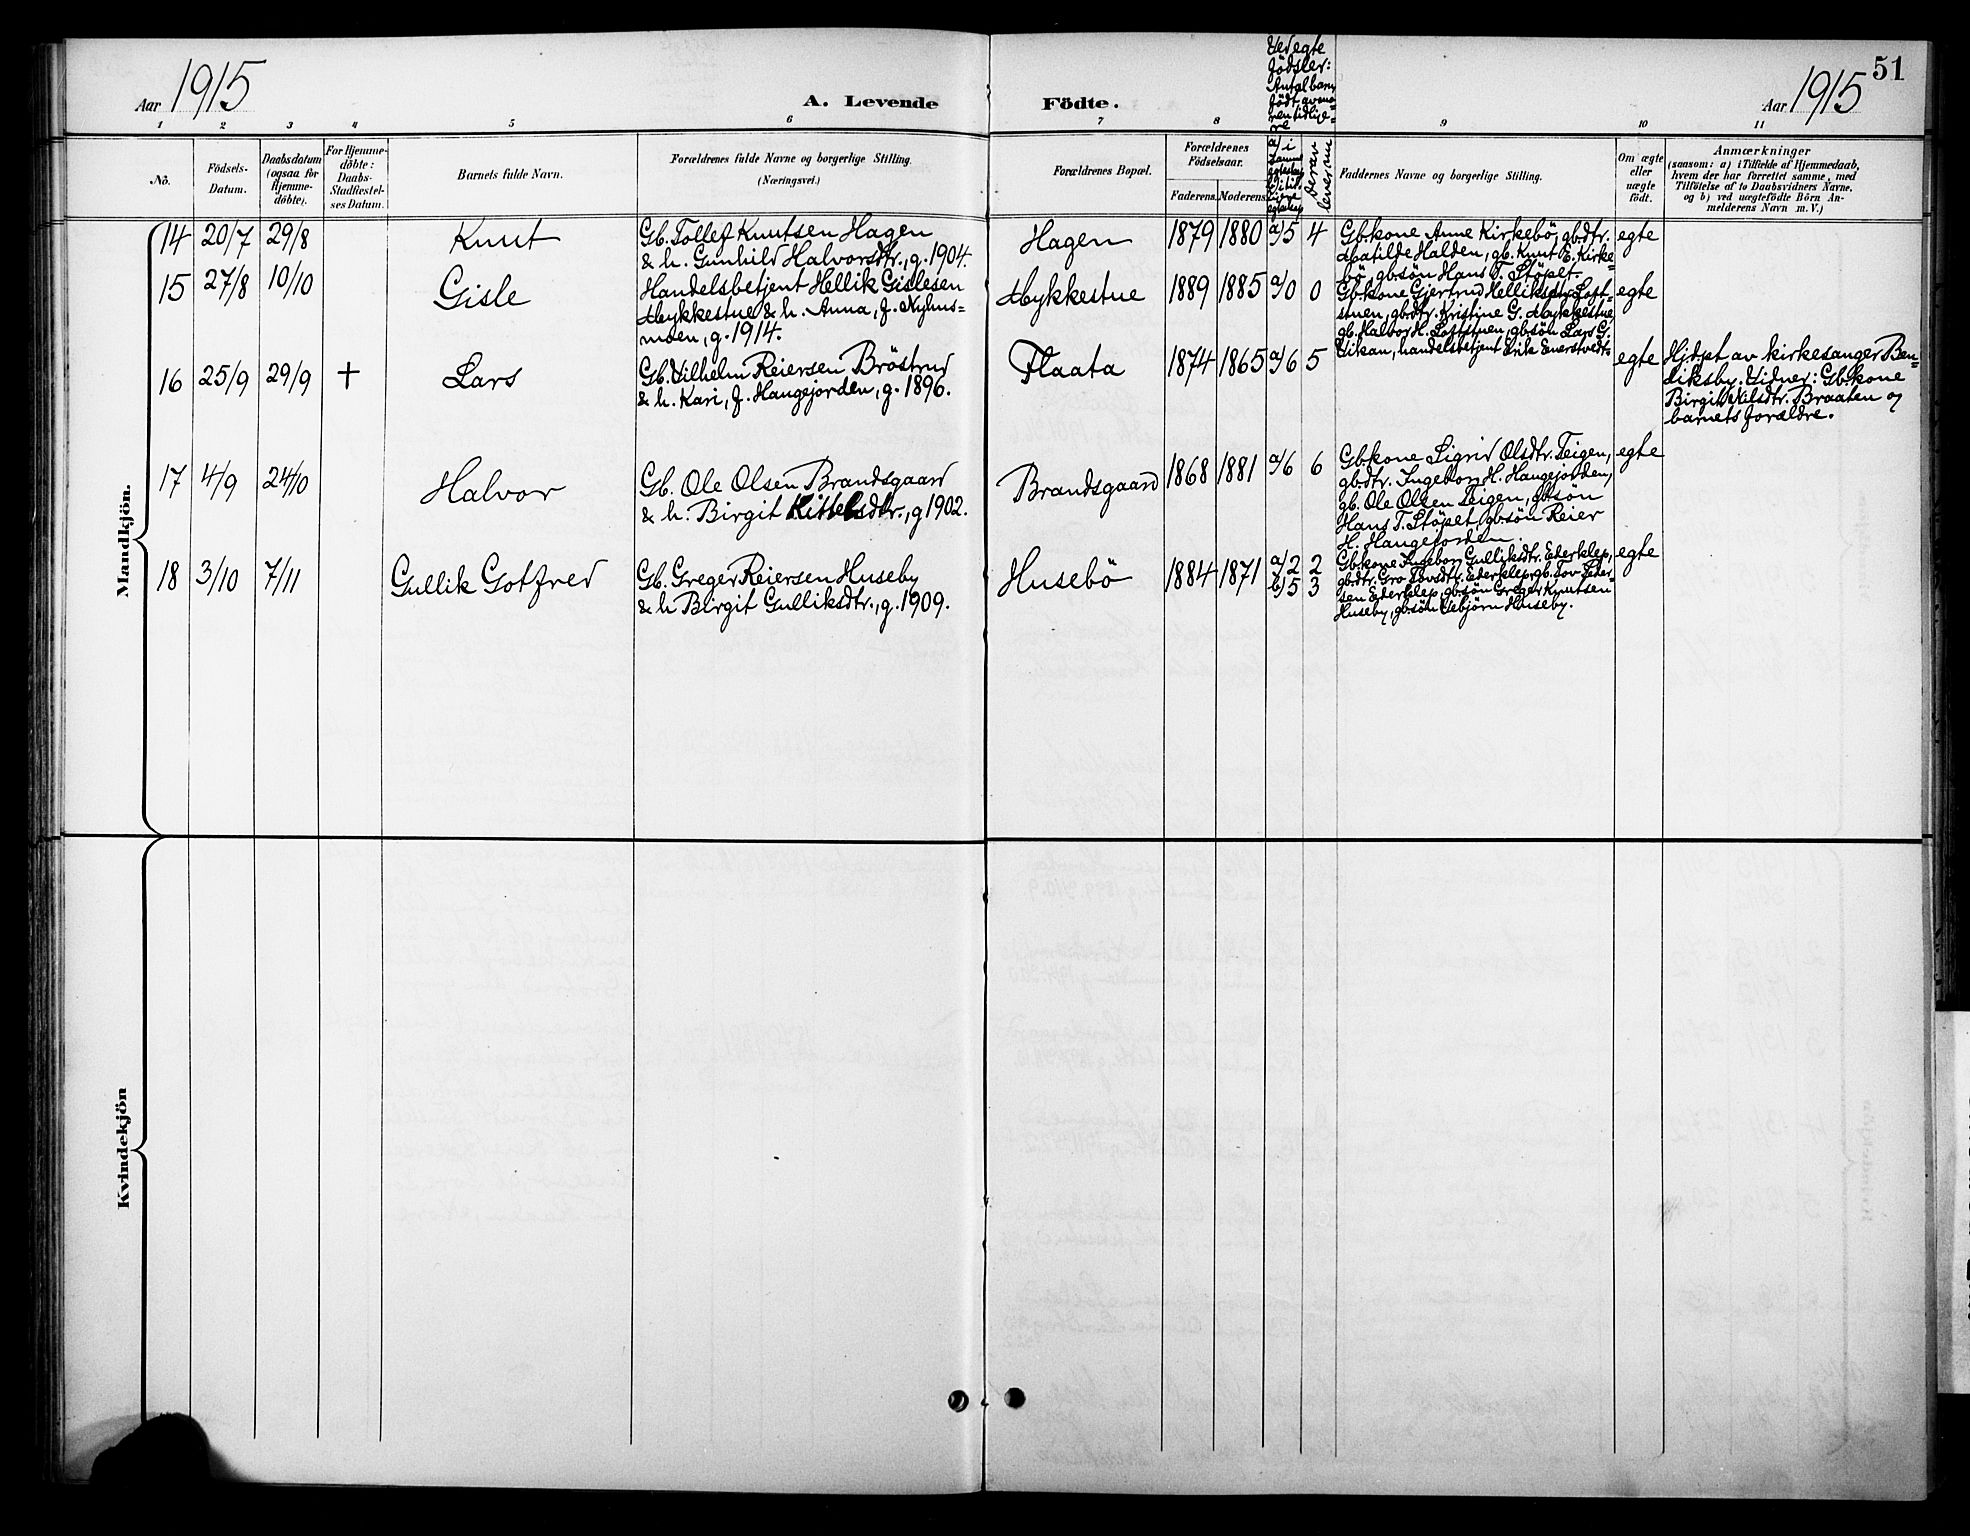 51
Aar 1915
A. Levende Födte.
Aar 1915
Ved egte
födsler:
Antal barn
födt av mo-
ren tidlige-
re
1 2 3 4 5 6 7 8 9 10 11
No.
Födsels-
Datum.
Daabsdatum
(ogsaa for
Hjemme-
döbte).
For Hjemme-
döbte:
Daabs-
Stadfæstel-
ses Datum.
Barnets fulde Navn.
Forældrenes fulde Navne og borgerlige Stilling.
(Næringsvei.)
Forældrenes Bopæl.
Forældrenes
Födselsaar.
Faderens. Moderens.
a) i
derav
lever nu
Faddernes Navne og borgerlige Stilling.
Om ægte
eller
uægte
födt.
Anmærkninger
(saasom: a) i Tilfælde af Hjemmedaab,
hvem der har forrettet samme, med
Tilföielse af to Daabsvidners Navne,
og b) ved uægtefödte Börn An-
melderens Navn m. V.)
Mandkjön.
14 20/7 29/8 Knut
Gb. Tollef Knutsen Hagen
& h. Gunhild Halvorsdtr., g. 1904.
Hagen 1879 1880 a/5 4
Gb.kone Anne Kirkebö, gb.dtr.
Matilde Halden, gb. Knut E. Kirke-
bö, gb.sön Hans T. Stöpet.
egte
15 27/8 10/10 Gisle
Handelsbetjent Hellik Gislesen
Mykkestue & h. Anna, f. Nyhus-
moen, g. 1914.
Mykkestue 1889 1885 a/0 0
Gb.kone Gjertrud Helliksdtr. Loft-
stuen, gb.dtr. Kristine G. Mykkestue,
gb. Halvor H. Loftstuen, gb.sön Lars G.
Vikan, handelsbetjent Erik Everstvedt.
egte
16 25/9 29/9 + Lars
Gb. Vilhelm Reiersen Bröstrud
& h. Kari, f. Haugejorden, g. 1896.
Flaata 1874 1865 a/6 5
egte
Hjdpt av kirkesanger Ben-
diksby. Vidner: Gb.kone
Birgit Nilsdtr. Braaten og
barnets forældre.
17 4/9 24/10 Halvor
Gb. Ole Olsen Brandsgaard
& h. Birgit Kittelsdtr., g 1902.
Brandsgaard 1868 1881 a/6 6
Gb.kone Sigrid Olsdtr. Teigen,
gb.dtr. Ingebor H. Haugejorden,
gb. Ole Olsen Teigen, gb.sön
Hans T. Stöpet, gb.sön Reier
H. Haugejorden.
egte
18 3/10 7/11 Gullik Gotfred
Gb. Greger Reiersen Huseby
& h Birgit Gulliksdtr., g. 1909.
Husebö 1884 1871 a/2 2
b/5 3
Gb.kone Ingebor Gulliksdtr. Ederklep,
gb.dtr. Gro Tovsdtr. Ederklep, gb. Tov Peder-
sen Ederklep, gb.sön Greger Knutsen
Huseby, gb.sön Vebjörn Huseby.
egte
Kvindekjön